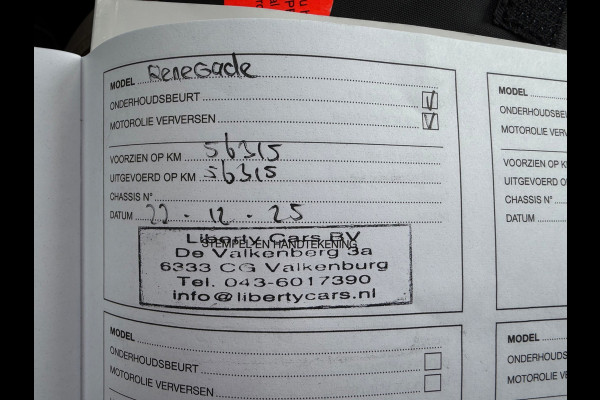 MODEL Renegade
ONDERHOUDSBEURT
MOTOROLIE VERVERSEN
VOORZIEN OP KM 56315
UITGEVOERD OP KM 56315
CHASSIS N°
DATUM 22 - 12 - 25
STEMPEL EN HANDTEKENING
Liberty Cars BV
De Valkenberg 3a
6333 CG Valkenburg
Tel. 043-6017390
info@libertycars.nl
MODEL
ONDERHOUDSBEURT
MOTOROLIE VERVERSEN
MODEL
ONDERHOUDSBEU
MOTOROLIE VERV
VOORZIEN OP K
UITGEVOERD O
CHASSIS N°
DATUM
MODEL
ONDERHOUDS
MOTOROLIE VE